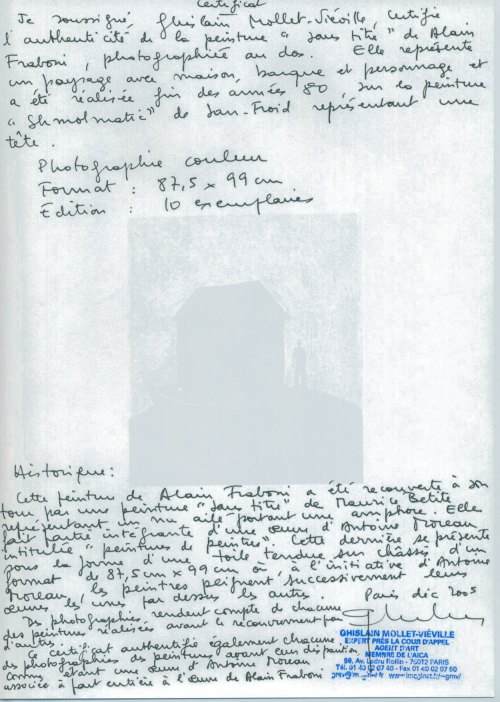 Certificat
Je soussigné, Ghislain Mollet-Viéville, certifie
l'authenticité de la peinture "Sans titre" de Alain
Fraboni, photographiée au dos. Elle représente
un paysage avec maison, barque et personnage et
a été réalisée fin des années 80, sur la peinture
"Shmolmatic" de Jan-Froid représentant une
tête.
Photographie couleur
Format : 87,5 x 99 cm
Edition : 10 exemplaires
Historique :
Cette peinture de Alain Fraboni a été recouverte à son
tour par une peinture "Sans titre" de Maurice Betite
représentant un nu ailé portant une amphore. Elle
fait partie intégrante d'un œuvre d'Antoine Moreau
intitulée "peintures de peintres". Cette dernière se présente
sous la forme d'une toile tendue sur châssis d'un
format de 87,5 cm x 99 cm où à l'initiative d'Antoine
Moreau, les peintres peignent successivement leurs
œuvres les unes par dessus les autres. Paris déc 2005
Des photographies rendent compte de chacune
des peintures réalisées avant le recouvrement par
d'autres.
Ce certificat authentifie également chacune
des photographies de peintures avant leur disparition
comme étant une œuvre d'Antoine Moreau
associée à part entière à l'œuvre de Alain Fraboni
GHISLAIN MOLLET-VIÉVILLE
EXPERT PRÈS LA COUR D'APPEL
AGENT D'ART
MEMBRE DE L'AICA
Av. Ledru Rollin - 75012 PARIS
Tél. 01 40 02 07 40 - Fax 01 40 02 07 50